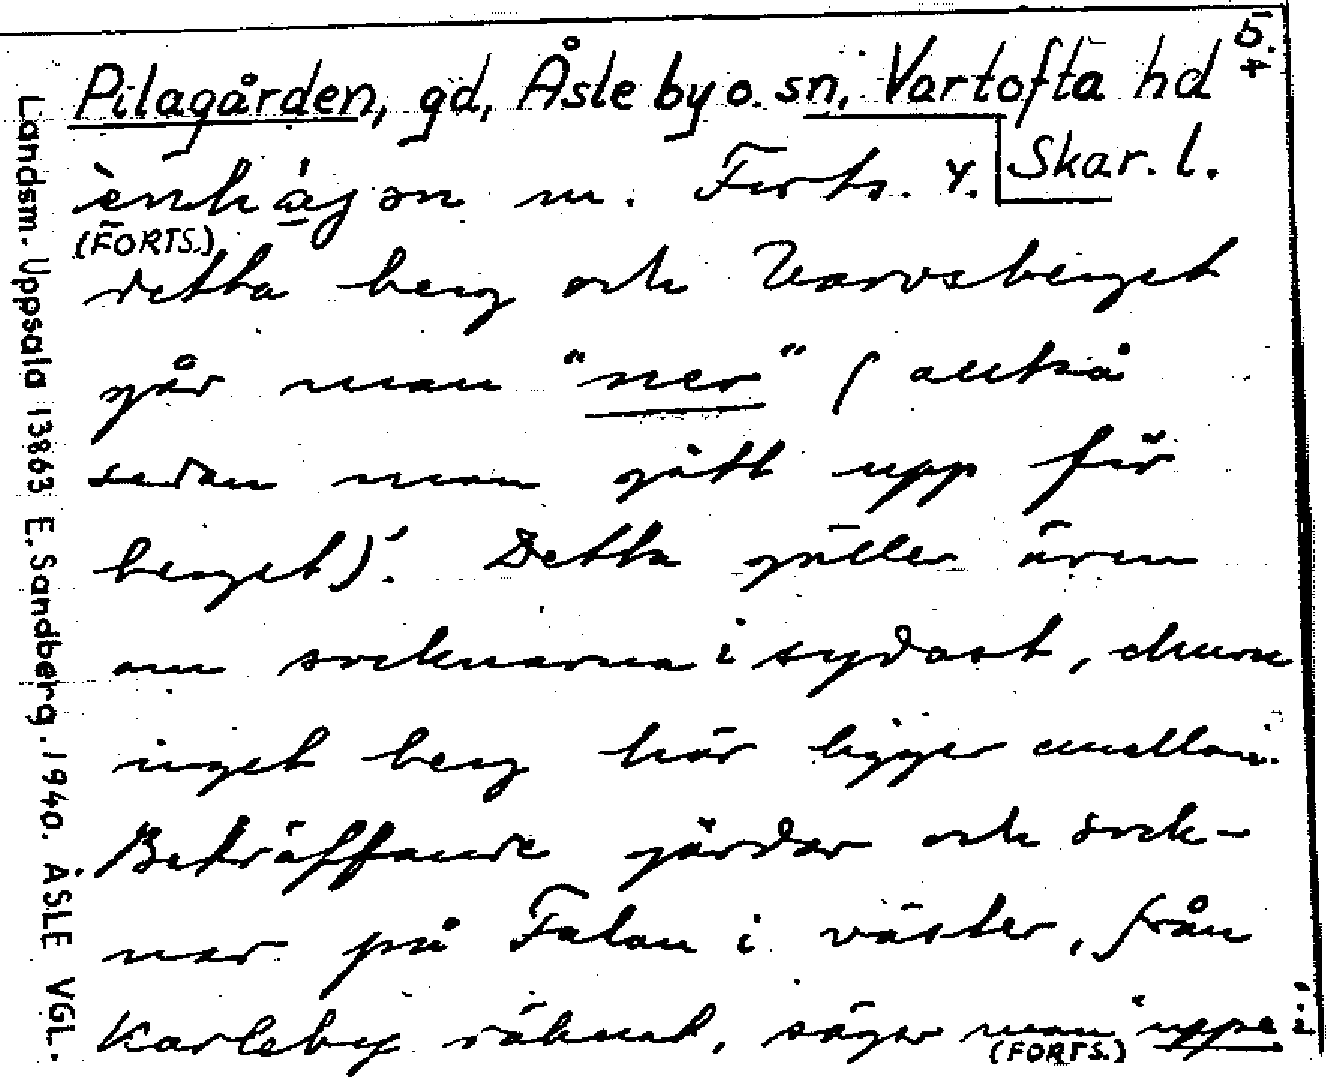 5.
4
Pilagården, gd, Åsle by o. sn, Vartofta hd
Skar. l.
m. Forts. 4.
(FORTS.)
detta berg och Varvsberget
går man "ner" (alltså
sedan man gått upp för
berget)! Detta gäller även
om socknarna i sydost, ehuru
inget berg här ligger emellan.
Beträffande gårdar och sock-
nar på Falan i väster, från
Karleby räknat, säger man "uppe i
(FORTS.)
Landsm. Uppsala 13863 E. Sandberg. 1940. ÅSLE VGL.